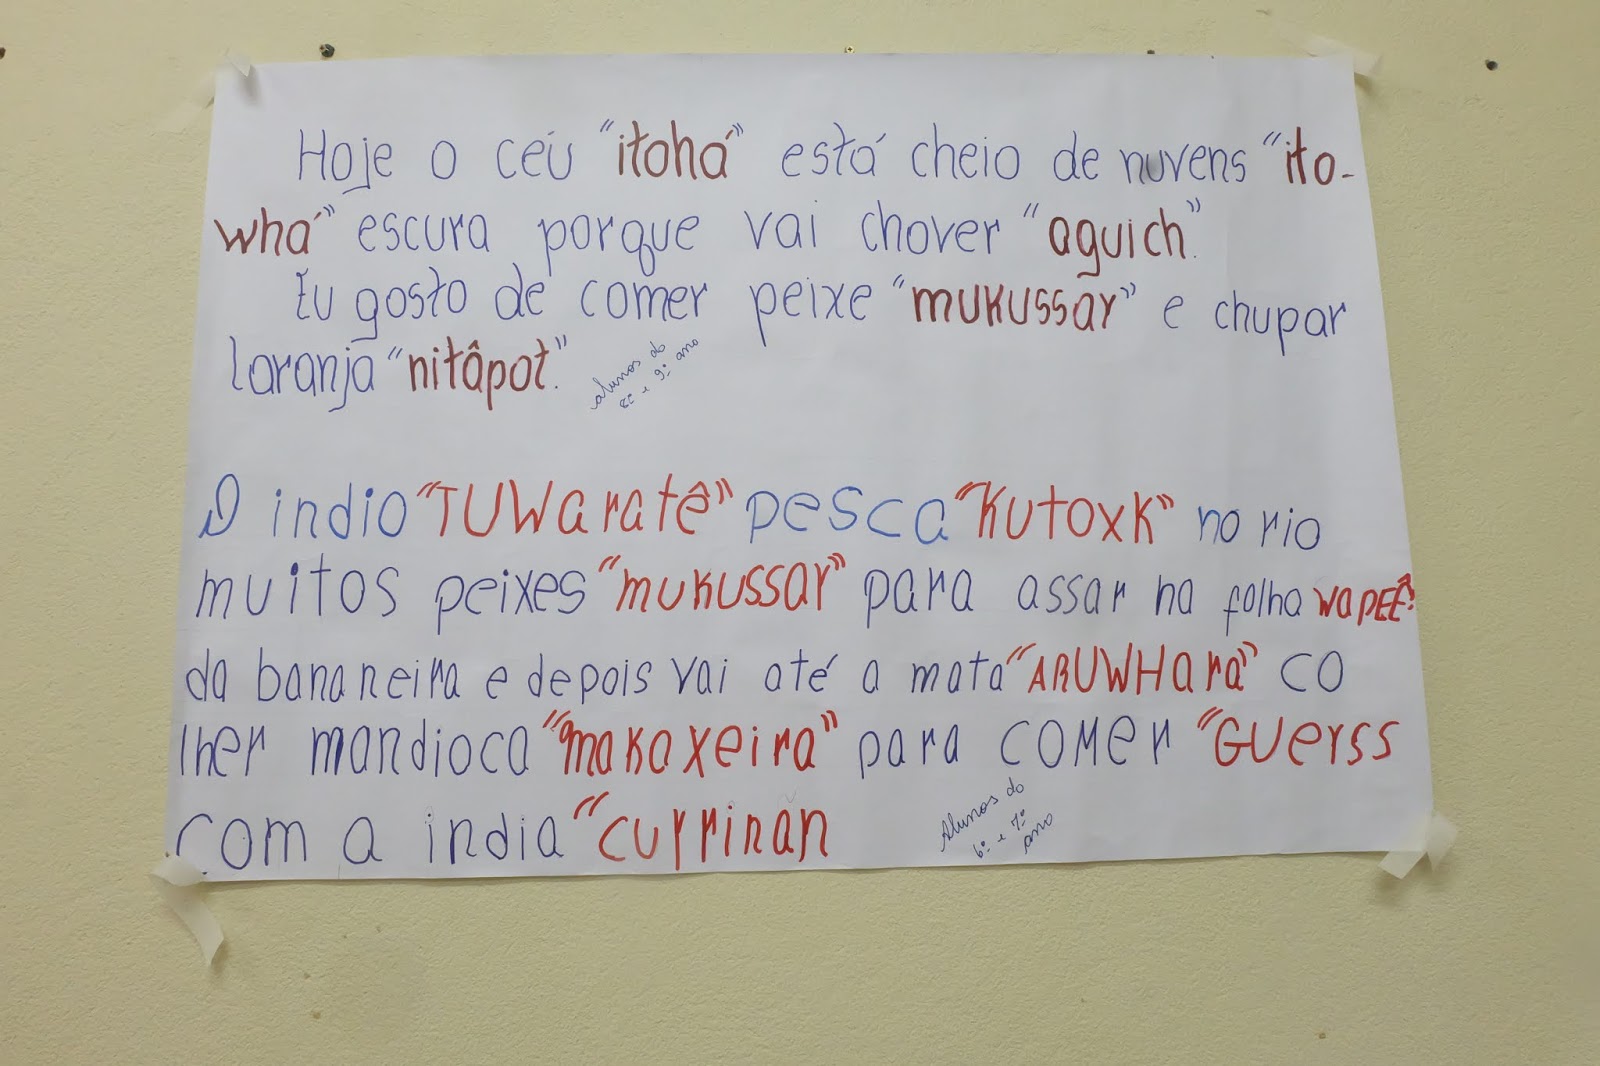 Hoje o céu “itohá” está cheio de nuvens “ito-
whá” escura porque vai chover “aguich”.
Eu gosto de comer peixe “mukussar” e chupar
laranja “nitâpot”.
Alunos do
8º e 9º ano
O indio “TUWaratê” pesca “KUTOXK” no rio
muitos peixes “mukussar” para assar na folha WAPEÊ”
da bananeira e depois vai até a mata “ARUWHara” CO
lher mandioca “makaxeira” para comer “GUerss
com a india “curriñan
Alunos do
6º e 7º
ano